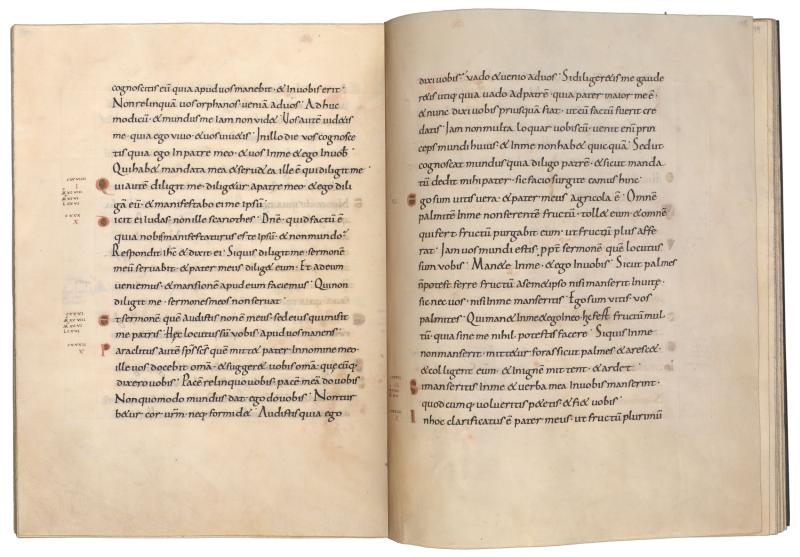 cognoscitis eū quia apud vos manebit · & In vobis erit ·
Non relinquā vos orphanos · veniā ad vos · Ad huc
modicū · & mundus me Iam non vid& · Vos autē vid&is
me · quia ego vivo · & vos viv&is · In illo die vos cognosce
tis quia ego In patre meo · & vos In me & ego In vob̄ ·
Qui hab& mandata mea & serv& ea ille ē qui diligit me ·
Qui autē diligit me · dilig&ur a patre meo · & ego dili
gā eū · & manifestabo ei me ipsū ·
Dicit ei Iudas · non ille scariothes · Dn̄e · quid factū ē
quia nobis manifestaturus es te ipsū · & non mundo ·
Respondit ih̄c & dixit ei · Siquis diligit me · sermonē
meū servabit · & pater meus dilig& eum · Et ad eum
veniemus · & mansionē apud eum faciemus · Qui non
diligit me · sermones meos non servat ·
Et sermonē quē audistis non ē meus · sed eius qui misit
me patris · Hęc locutus sū vobis apud vos manens ·
Paraclitus autē sp̄s sc̄s quē mitt& pater In nomine meo ·
ille vos docebit om̄a · & sugger& vobis om̄a · quęcūq·
dixero vobis · Pacē relinquo vobis · pacē meā do vobis
Non quomodo mundus dat · ego do vobis · Non tur
b&ur cor vr̄m · neq· formid& · Audistis quia ego
dixi vobis · vado & venio ad vos · Si diliger&is me gaude
r&is utiq· quia vado ad patrē · quia pater maior me ē ·
& nunc dixi vobis priusquā fiat · ut cū factū fuerit cre
datis · Iam non multa loquar vobiscū · venit enī prin
ceps mundi huius · & In me non hab& quicquā · Sed ut
cognoscat mundus quia diligo patrē · & sicut manda
tū dedit mihi pater · sic facio surgite eamus hinc ·
Ego sum vitis vera · & pater meus agricola ē · Omnē
palmitē In me non ferentē fructū · toll& eum · & omnē
qui fert fructū purgabit eum · ut fructū plus affe
rat · Iam vos mundi estis · ppt̄ sermonē quē locutus
sum vobis · Man&e In me · & ego In vobis · Sicut palmes
n̄ potest ferre fructū a sem&ipso nisi manserit In vite ·
sic nec vos · nisi In me manseritis · Ego sum vitis · vos
palmites · Qui man& In me & ego In eo · hic fert fructū mul
tū · quia sine me nihil potestis facere · Siquis In me
non manserit · mitt&ur foras sicut palmes · & aresc& ·
& colligent eum · & In ignē mittent · & ard&
Si manseritis In me & verba mea In vobis manserint ·
quodcumq· volueritis p&etis · & fi& vobis ·
In hoc clarificatus ē pater meus · ut fructū plurimū